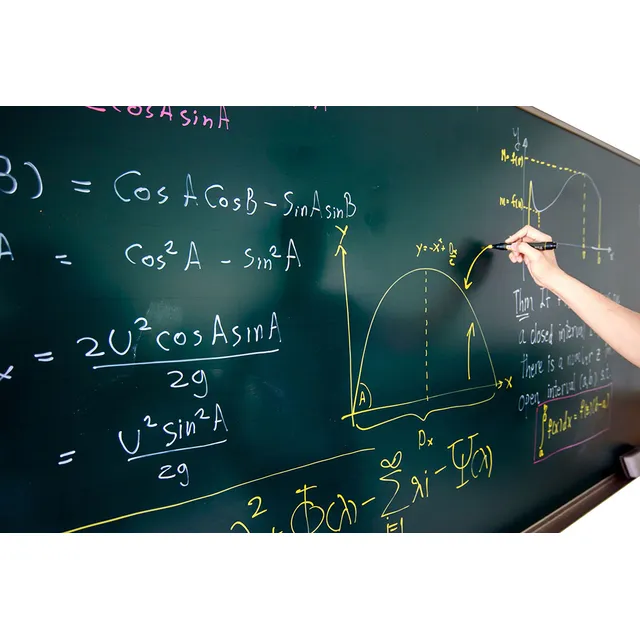 cosA sinA
B) = CosA CosB - SinA sinB
A = Cos²A - Sin²A
x = 2U²cosAsinA / 2g
= U² sin²A / 2g
y
y = -x² + Dx/c
A
x
Dx
λ² + Φ(λ) - ∞ Σ i=1 λi - Ψ(λ)
y
M = f(m)
m = f(n)
x
Thm If
a closed interval
there is a number z
open interval (a,b) s.t.
∫ f(x)dx = f(z)(b-a)